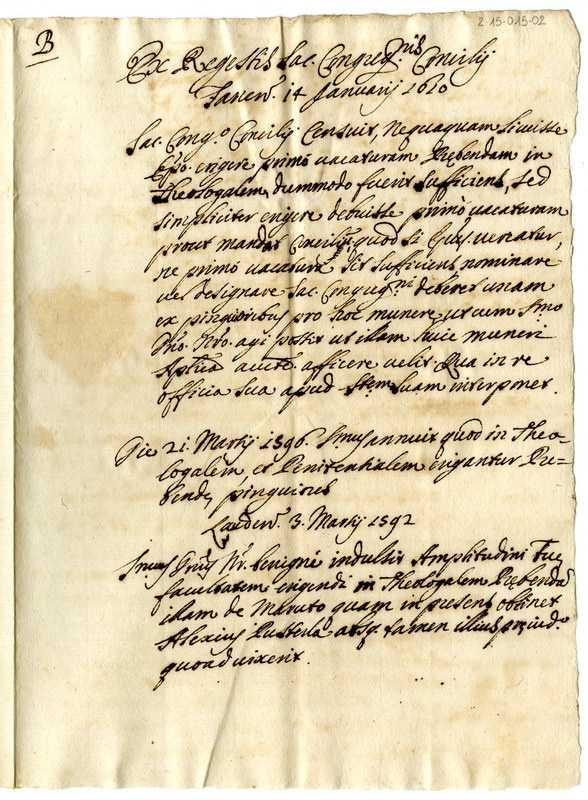 2-15-015-02
B
Ex Regestis Sac. Congreg.nis Concilij
Januen. 14 Januarij 1610
Sac. Cong.o Concilij Censuit, Nequaquam licuisse
Epo. erigere primò uacaturam Prebendam in
Theologalem, dummodo fuerit sufficiens, sed
simpliciter erigere debuisse primò uacaturam
prout mandat Concilium, quod si Epus. uereatur,
ne primò uacatura sit sufficiens, nominare
uel designare Sac. Congreg.ni deberet unam
ex pinguioribus pro hoc munere, ut cum Smo
Dno. Nro. agi possit ut illam huic muneri
Aplica aucte. afficere uelit. Qua in re
officia sua apud Stem suam interponet.
Die 21. Martij 1596. Smus annuit quod in Theo-
logalem, et Penitentialem erigantur Pre-
bende, pinguiores
Lauden. 3. Martij 1592
Smus Dnus Nr. benignè indulsit Amplitudini Tue
facultatem erigendi in Theologalem Prebendã
illam de Maruto quam in presens obtinet
Alexius Pusterla absq. tamen illius preiud.o
quoad uixerit.